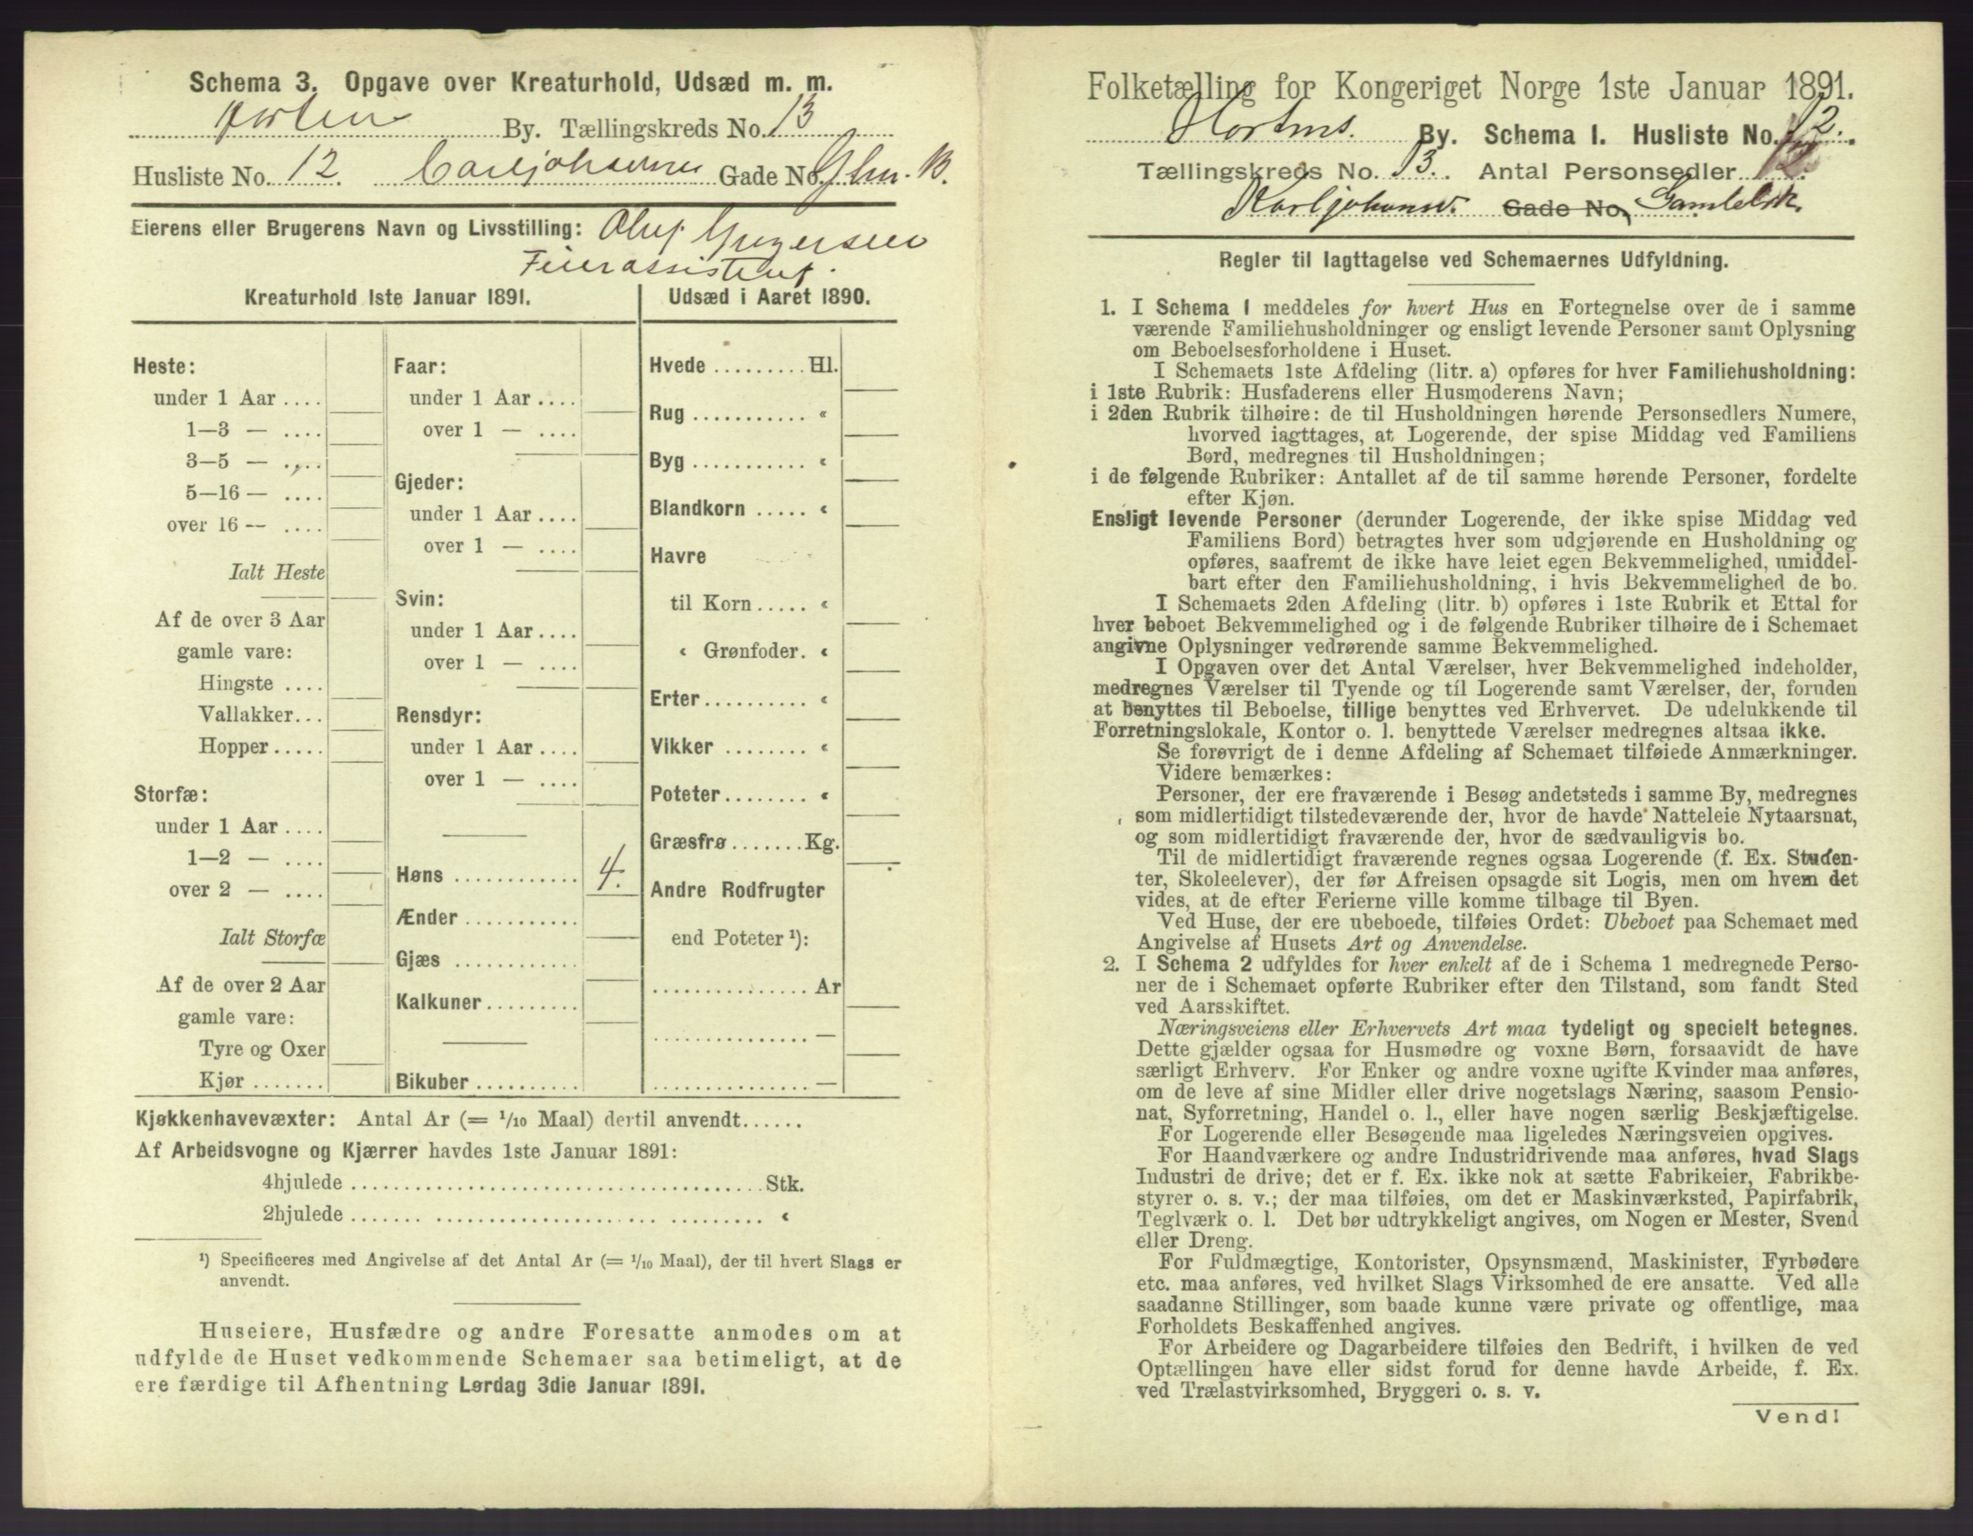 Schema 3. Opgave over Kreaturhold, Udsæd m. m.
Horten By. Tællingskreds No. 13
Husliste No. 12. Carljohansvæ Gade No.
Eierens eller Brugerens Navn og Livsstilling: Oluf
Feierassistent.
Kreaturhold 1ste Januar 1891.
Heste:
under 1 Aar ....
1—3 — ....
3—5 — ....
5—16 — ....
over 16 — ....
Ialt Heste
Af de over 3 Aar
gamle vare:
Hingste ....
Vallakker...
Hopper.....
Storfæ:
under 1 Aar ....
1—2 — ....
over 2 — ....
Ialt Storfæ
Af de over 2 Aar
gamle vare:
Tyre og Oxer
Kjør .......
Faar:
under 1 Aar ....
over 1 — ....
Gjeder:
under 1 Aar ....
over 1 — ....
Svin:
under 1 Aar ....
over 1 — ....
Rensdyr:
under 1 Aar ....
over 1 — ....
Høns ............ 4.
Ænder ...........
Gjæs ............
Kalkuner.........
Bikuber ..........
Udsæd i Aaret 1890.
Hvede ......... Hl.
Rug ........... «
Byg ........... «
Blandkorn ..... «
Havre
til Korn ..... «
« Grønfoder. «
Erter .......... «
Vikker ........ «
Poteter ........ «
Græsfrø ....... Kg.
Andre Rodfrugter
end Poteter ¹):
............... Ar
............... —
............... —
Kjøkkenhavevæxter: Antal Ar (= 1/10 Maal) dertil anvendt......
Af Arbeidsvogne og Kjærrer havdes 1ste Januar 1891:
4hjulede ........................................ Stk.
2hjulede ....... ...................... ......... «
¹) Specificeres med Angivelse af det Antal Ar (= 1/10 Maal), der til hvert Slags er
anvendt.
Huseiere, Husfædre og andre Foresatte anmodes om at
udfylde de Huset vedkommende Schemaer saa betimeligt, at de
ere færdige til Afhentning Lørdag 3die Januar 1891.
Folketælling for Kongeriget Norge 1ste Januar 1891.
Hortens. By. Schema 1. Husliste No. 12.
Tællingskreds No. 13. Antal Personsedler 12.
Karljohansv. Gade No.
Regler til Iagttagelse ved Schemaernes Udfyldning.
1. I Schema 1 meddeles for hvert Hus en Fortegnelse over de i samme
værende Familiehusholdninger og ensligt levende Personer samt Oplysning
om Beboelsesforholdene i Huset.
I Schemaets 1ste Afdeling (litr. a) opføres for hver Familiehusholdning:
i 1ste Rubrik: Husfaderens eller Husmoderens Navn;
i 2den Rubrik tilhøire: de til Husholdningen hørende Personsedlers Numere,
hvorved iagttages, at Logerende, der spise Middag ved Familiens
Bord, medregnes til Husholdningen;
i de følgende Rubriker: Antallet af de til samme hørende Personer, fordelte
efter Kjøn.
Ensligt levende Personer (derunder Logerende, der ikke spise Middag ved
Familiens Bord) betragtes hver som udgjørende en Husholdning og
opføres, saafremt de ikke have leiet egen Bekvemmelighed, umiddel-
bart efter den Familiehusholdning, i hvis Bekvemmelighed de bo.
I Schemaets 2den Afdeling (litr. b) opføres i 1ste Rubrik et Ettal for
hver beboet Bekvemmelighed og i de følgende Rubriker tilhøire de i Schemaet
angivne Oplysninger vedrørende samme Bekvemmelighed.
I Opgaven over det Antal Værelser, hver Bekvemmelighed indeholder,
medregnes Værelser til Tyende og til Logerende samt Værelser, der, foruden
at benyttes til Beboelse, tillige benyttes ved Erhvervet. De udelukkende til
Forretningslokale, Kontor o. l. benyttede Værelser medregnes altsaa ikke.
Se forøvrigt de i denne Afdeling af Schemaet tilføiede Anmærkninger.
Videre bemærkes:
Personer, der ere fraværende i Besøg andetsteds i samme By, medregnes
som midlertidigt tilstedeværende der, hvor de havde Natteleie Nytaarsnat,
og som midlertidigt fraværende der, hvor de sædvanligvis bo.
Til de midlertidigt fraværende regnes ogsaa Logerende (f. Ex. Studen-
ter, Skoleelever), der før Afreisen opsagde sit Logis, men om hvem det
vides, at de efter Ferierne ville komme tilbage til Byen.
Ved Huse, der ere ubeboede, tilføies Ordet: Ubeboet paa Schemaet med
Angivelse af Husets Art og Anvendelse.
2. I Schema 2 udfyldes for hver enkelt af de i Schema 1 medregnede Perso-
ner de i Schemaet opførte Rubriker efter den Tilstand, som fandt Sted
ved Aarsskiftet.
Næringsveiens eller Erhvervets Art maa tydeligt og specielt betegnes.
Dette gjælder ogsaa for Husmødre og voxne Børn, forsaavidt de have
særligt Erhverv. For Enker og andre voxne ugifte Kvinder maa anføres,
om de leve af sine Midler eller drive nogetslags Næring, saasom Pensio-
nat, Syforretning, Handel o. l., eller have nogen særlig Beskjæftigelse.
For Logerende eller Besøgende maa ligeledes Næringsveien opgives.
For Haandværkere og andre Industridrivende maa anføres, hvad Slags
Industri de drive; det er f. Ex. ikke nok at sætte Fabrikeier, Fabrikbe-
styrer o. s. v.; der maa tilføies, om det er Maskinværksted, Papirfabrik,
Teglværk o. l. Det bør udtrykkeligt angives, om Nogen er Mester, Svend
eller Dreng.
For Fuldmægtige, Kontorister, Opsynsmænd, Maskinister, Fyrbødere
etc. maa anføres, ved hvilket Slags Virksomhed de ere ansatte. Ved alle
saadanne Stillinger, som baade kunne være private og offentlige, maa
Forholdets Beskaffenhed angives.
For Arbeidere og Dagarbeidere tilføies den Bedrift, i hvilken de ved
Optællingen have eller sidst forud for denne havde Arbeide, f. Ex.
ved Trælastvirksomhed, Bryggeri o. s. v.
Vend!